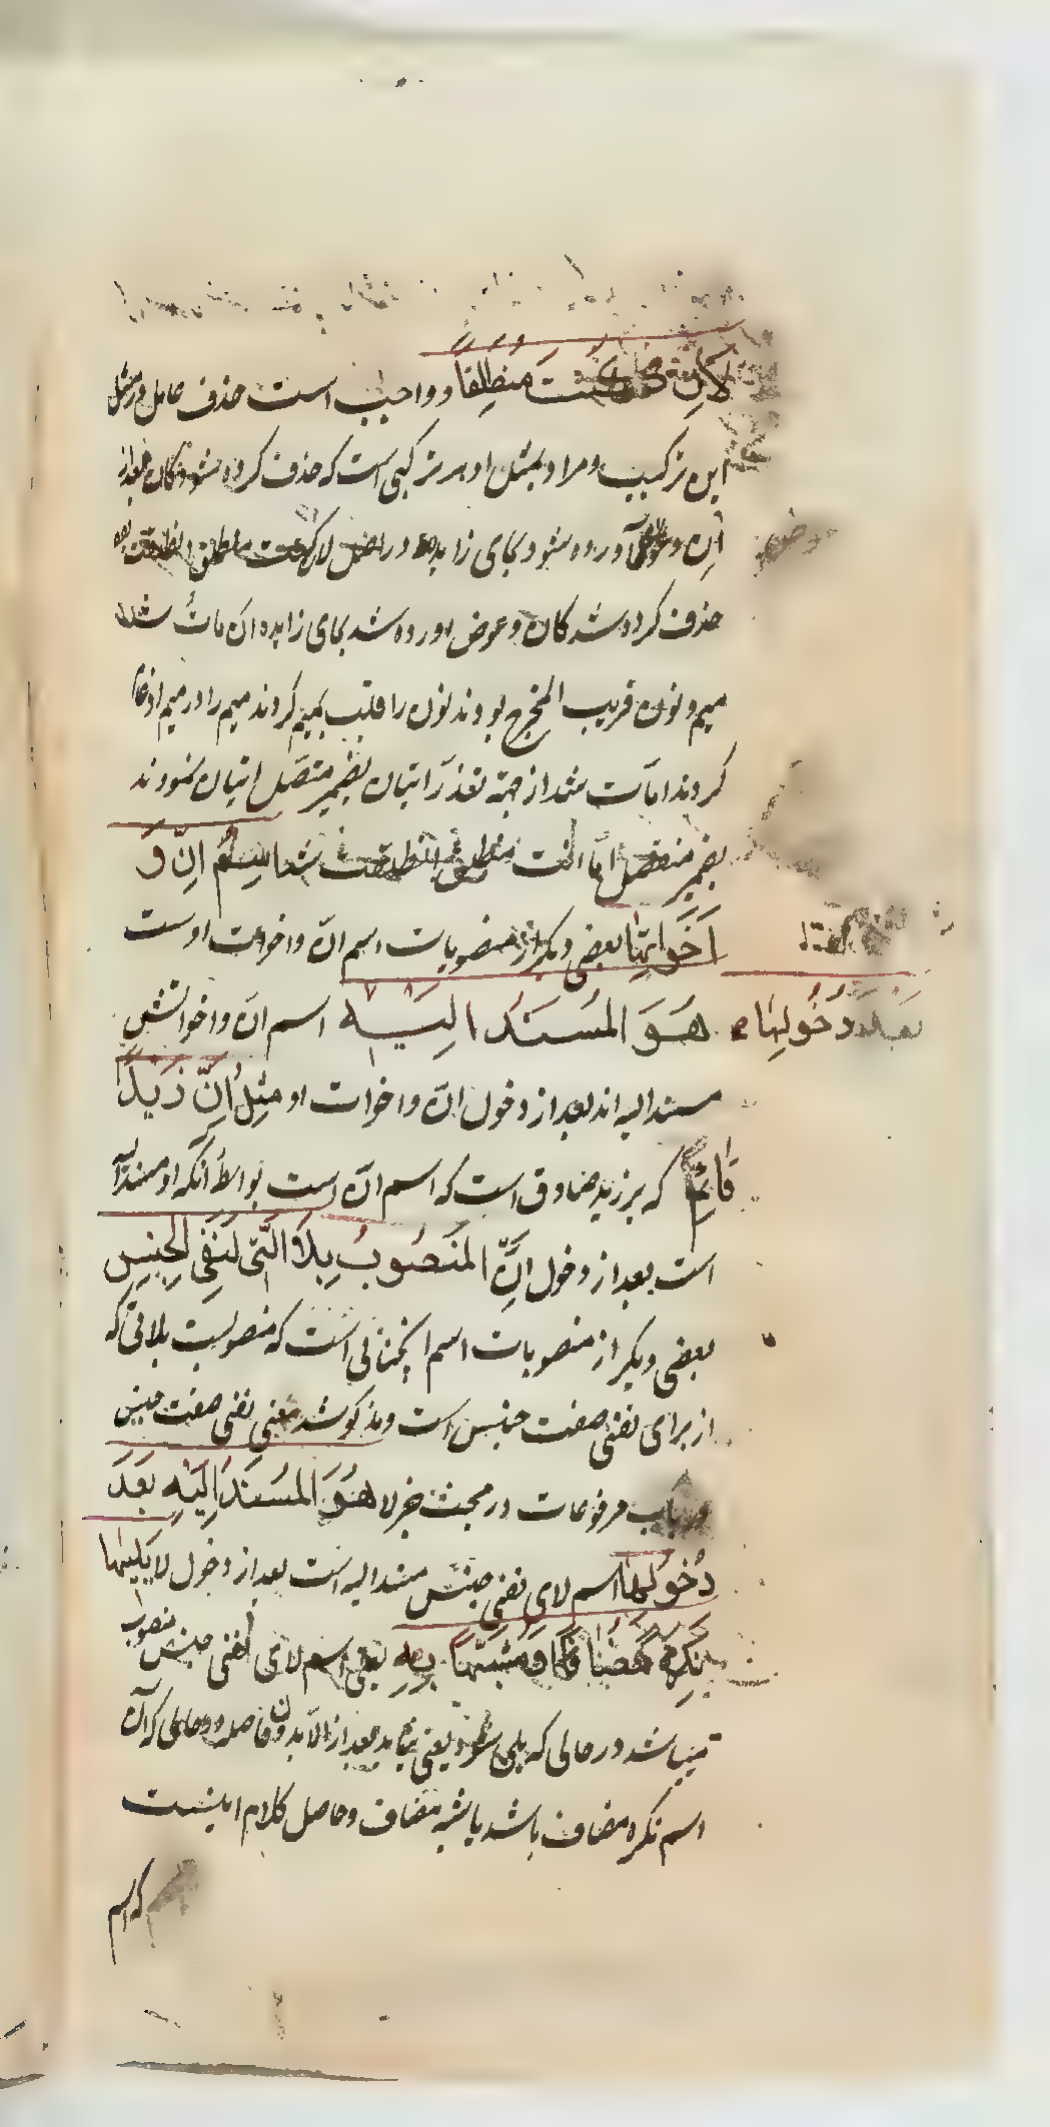 لأن كنت منطلقا و واجب است حذف عامل در مثل
این ترکیب و مراد بمثل او هر ترکیبی است که حذف کرده شود کان بعد از
ان و عوض آورده شود بجای ان ما زایده در اصل لان كنت منطلقا انطلقت بعده
حذف کرده شد کان و عوض اورده شد بجای زایده ان مات شد
میم و نون قریب المخرج بودند نون را قلب بمیم کردند میم را در میم ادغام
کردند امات شد از جهة تعذر اتیان بضمیر متصل اتیان نمودند
بضمیر منفصل اما انت منطلقا انطلقت شد اِسْمُ اِنَّ وَ
اَخَوَاتِهَا بعضی دیگر از منصوبات اسم انّ و اخوات اوست
هُوَ المُسْنَدُ اِلَیْهِ بَعْدَ دُخُولِهَا اسم انّ و اخواتش
مسند الیه اند بعد از دخول انّ و اخوات او مِثْلُ اِنَّ زَیْدًا
قَائِمٌ که بر زید صادق است که اسم انّ است بواسطهٔ آنکه او مسند الیه
است بعد از دخول اِنَّ المَنْصُوبُ بِلَا الَّتِی لِنَفْیِ الجِنْسِ
بعضی دیگر از منصوبات اسم آنچنانی است که منصوبست بلائی که
از برای نفی صفت جنس است و مذکور شد معنی نفی صفت جنس
در باب مرفوعات در مبحث خبر لا هُوَ المُسْنَدُ اِلَیْهِ بَعْدَ
دُخُولِهَا اسم لای نفی جنس مسند الیه است بعد از دخول لا یَلِیهَا
نَکِرَةً مُضَافًا اَوْ مُشَبَّهًا بِهِ یعنی اسم لای نفی جنس منصوب
میباشد در حالی که یلی یعنی بیاید بعد از لا بدون فاصله و در حالی که آن
اسم نکره مضاف باشد یا شبه مضاف و حاصل کلام اینست
که اسم